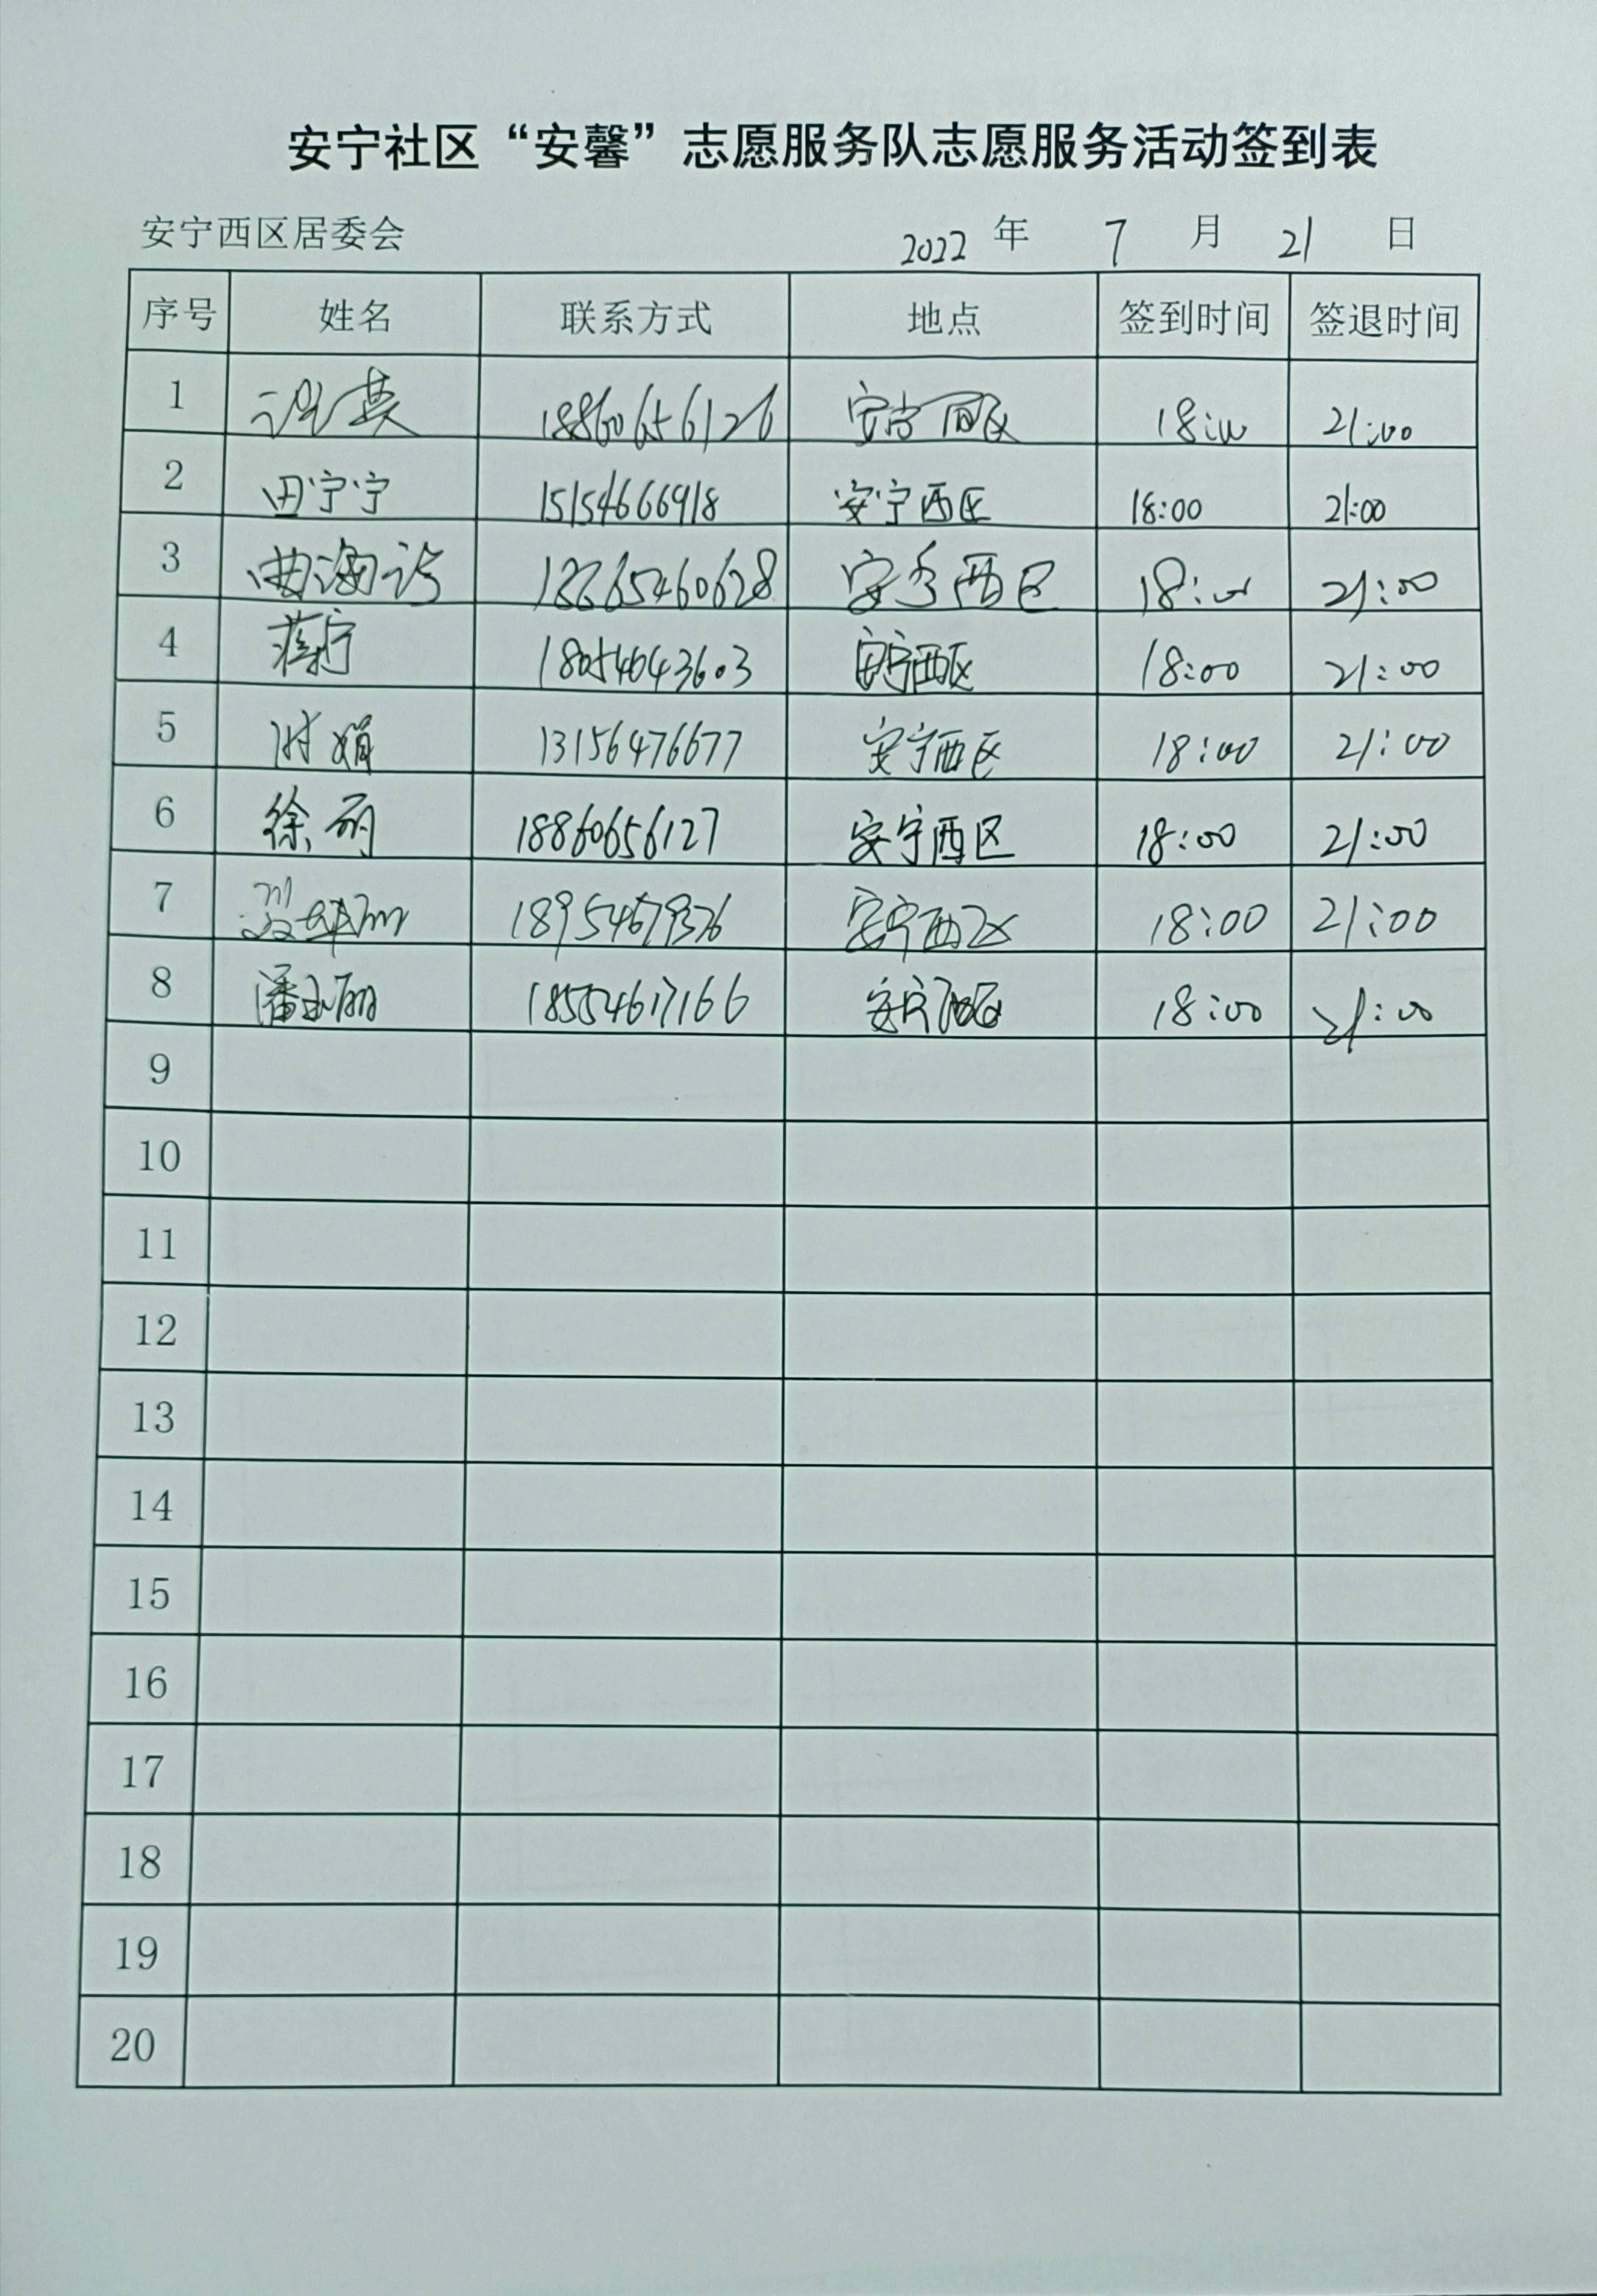 安宁社区“安馨”志愿服务队志愿服务活动签到表
安宁西区居委会 2022 年 7 月 21 日
序号 姓名 联系方式 地点 签到时间 签退时间
1 18860656126 安宁西区 18:00 21:00
2 田宁宁 15154666918 安宁西区 18:00 21:00
3 曲海 安宁西区 18:00 21:00
4 蒋宁 18054643603 安宁西区 18:00 21:00
5 时娟 13156476677 安宁西区 18:00 21:00
6 徐丽 18860656127 安宁西区 18:00 21:00
7 安宁西区 18:00 21:00
8 潘玉丽 18554617166 安宁西区 18:00 21:00
9
10
11
12
13
14
15
16
17
18
19
20